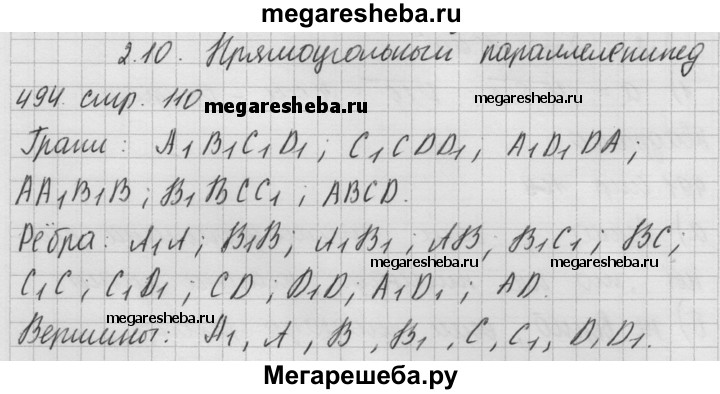 megaresheba.ru
2.10. Прямоугольный параллелепипед
494. стр. 110
megaresheba.ru
megaresheba.ru
Грани: A₁B₁C₁D₁; C₁CDD₁, A₁D₁DA;
AA₁B₁B; B₁BCC₁; ABCD.
Рёбра: A₁A; B₁B; A₁B₁; AB; B₁C₁; BC;
megaresheba.ru
megaresheba.ru
C₁C; C₁D₁; CD; D₁D; A₁D₁; AD.
megaresheba.ru
Вершины: A₁, A, B, B₁, C, C₁, D, D₁.
Мегарешеба.ру